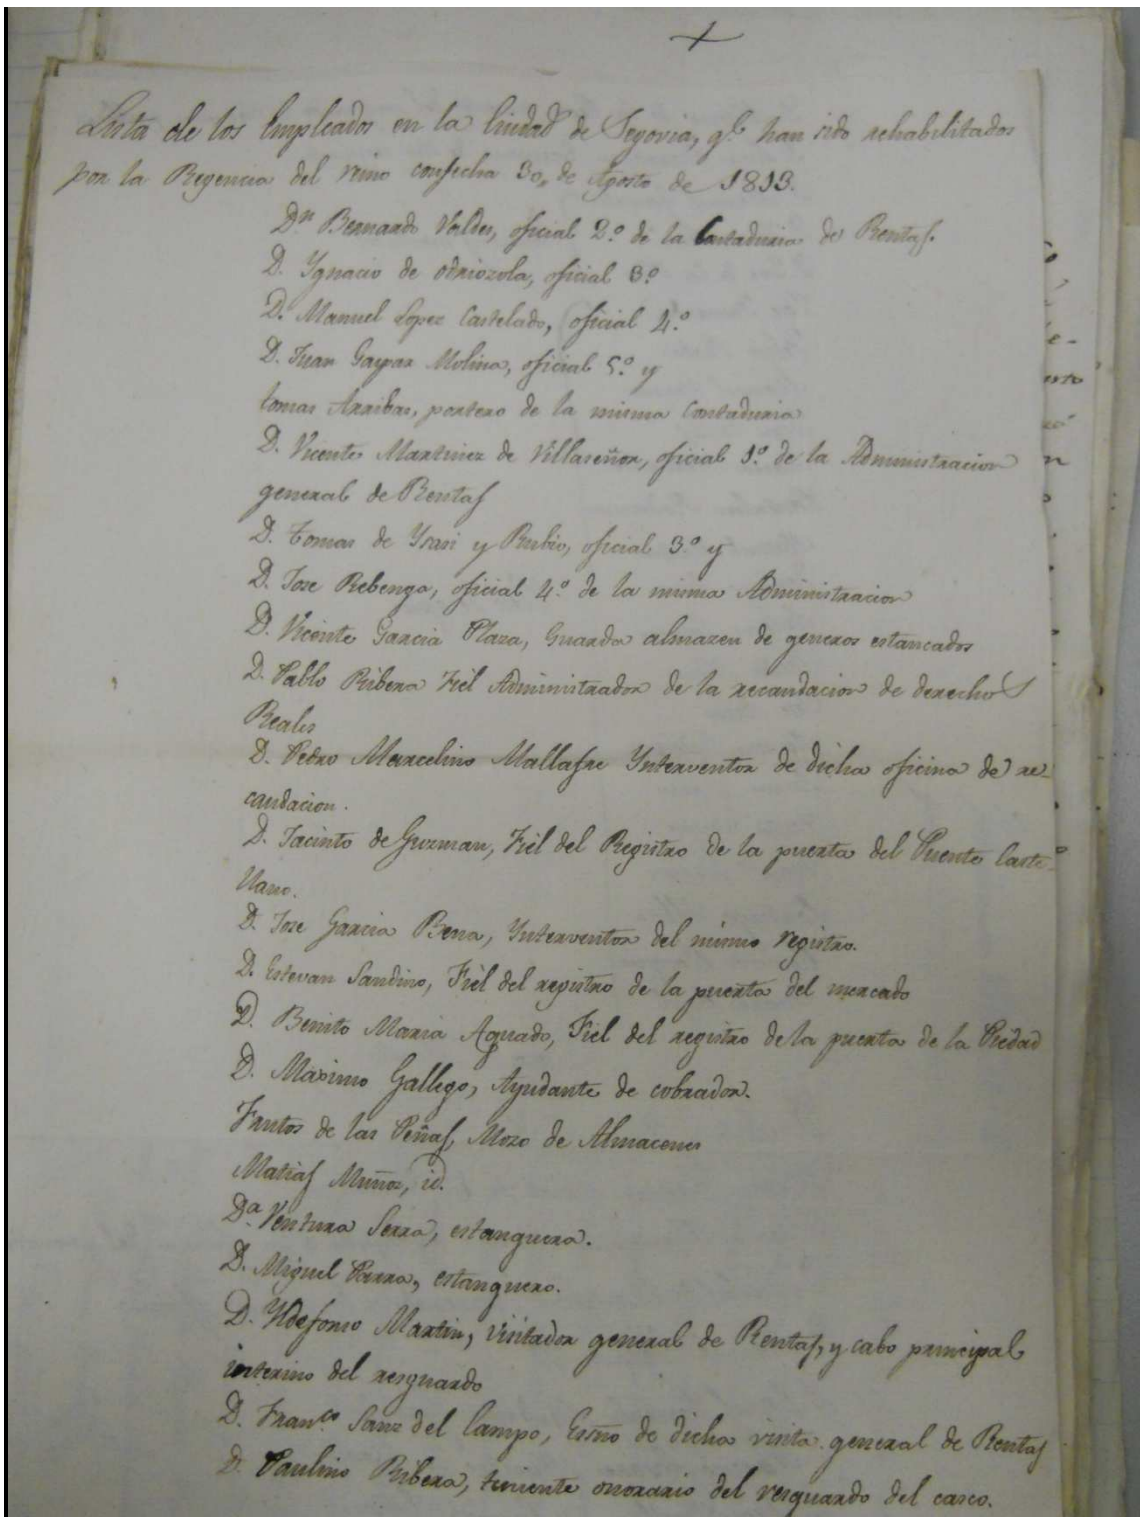 Lista de los Empleados en la Ciudad de Segovia, qe. han sido rehabilitados
por la Regencia del reino con fecha 30, de Agosto de 1813.
Dn Bernardo Valdes, oficial 2.º de la Contaduria de Rentas.
D. Ygnacio de Odriozola, oficial 3.º
D. Manuel Lopez Castelado, oficial 4.º
D. Juan Gaspar Molina, oficial 5.º y
Tomas Arribas, portero de la misma Contaduria
D. Vicente Martinez de Villaseñor, oficial 1.º de la Administracion
general de Rentas
D. Tomas de Ysasi y Rubio, oficial 3.º y
D. Jose Rebenga, oficial 4.º de la misma Administracion
D. Vicente Garcia Plaza, Guarda almazen de generos estancados
D. Pablo Ribera Fiel Administrador de la recaudacion de derechos
Reales
D. Pedro Marcelino Mallafre Ynterventor de dicha oficina de re-
caudacion.
D. Jacinto de Guzman, Fiel del Registro de la puerta del Puente Caste-
llano.
D. Jose Garcia Bena, Ynterventor del mismo registro.
D. Estevan Sandino, Fiel del registro de la puerta del mercado
D. Benito Maria Aguado, Fiel del registro de la puerta de la Piedad
D. Maximo Gallego, Ayudante de cobrador.
Frutos de las Peñas, Mozo de Almacenes
Matias Muñoz, id.
Da. Ventura Serra, estanquera.
D. Miguel Parra, estanquero.
D. Yldefonso Martin, Visitador general de Rentas, y cabo principal
interino del resguardo
D. Franco. Sanz del Campo, Essno de dicha visita general de Rentas
D. Paulino Ribera, teniente onorario del resguardo del casco.